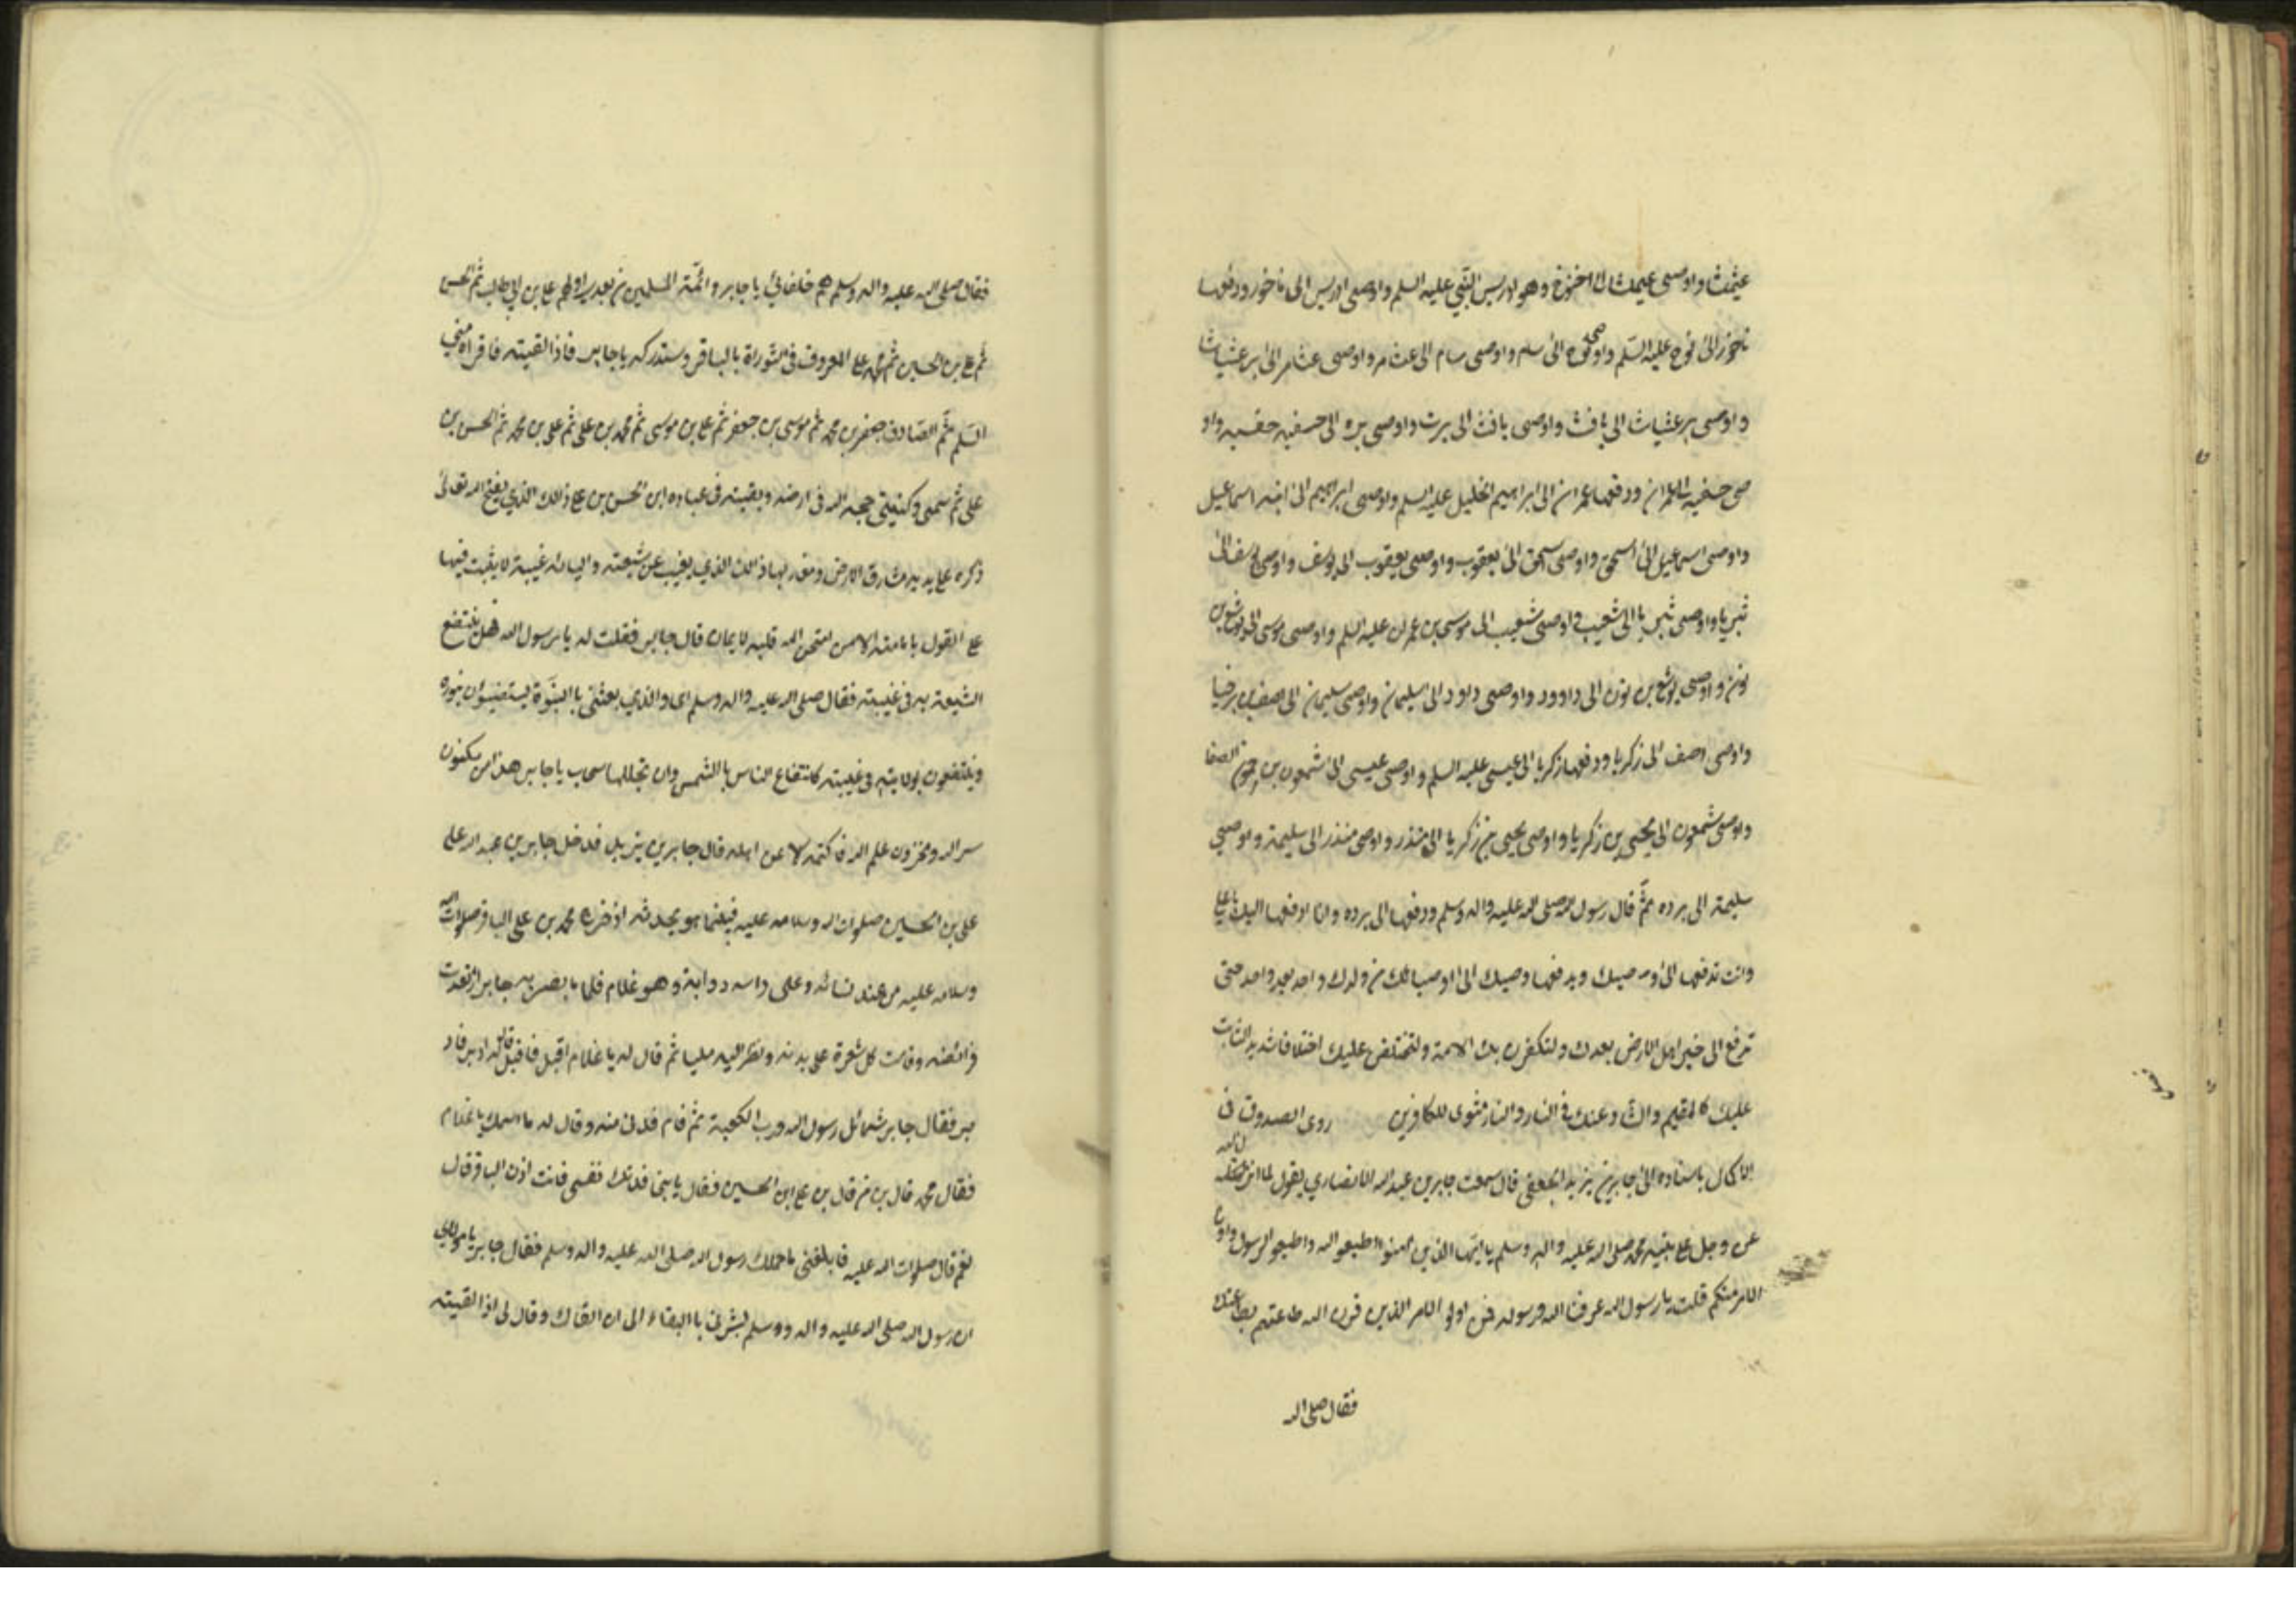 عيثمثا واوصى عيمثا الى اخنوخ وهو ادريس النبي عليه السلم واوصى ادريس الى ناخور ودفعها
ناخور الى نوح عليه السلم واوصى نوح الى سام واوصى سام الى عثامر واوصى عثامر الى برعيثاشا
واوصى برعثياث الى يافث واوصى يافث الى برت واوصى بره الى حفسيه واو
صى حفيسه الى عمران ودفعها عمران الى ابراهيم الخليل عليه السلم واوصى ابراهيم الى ابنه اسماعيل
واوصى اسماعيل الى اسحق واوصى اسحق الى يعقوب واوصى يعقوب الى يوسف واوصى يوسف الى
ثبريا واوصى ثبريا الى شعيب واوصى شعيب الى موسى بن عمران عليه السلم واوصى موسى الى يوشع بن
نون واوصى يوشع بن نون الى داوود واوصى داود الى سليمان واوصى سليمان الى اصف بن برخيا
واوصى اصف الى زكريا ودفعها زكريا الى عيسى عليه السلم واوصى عيسى الى شمعون بن حمون الصفا
واوصى شمعون الى يحيى بن زكريا واوصى يحيى بن زكريا الى منذر واوصى منذر الى سليمة واوصى
سليمة الى برده ثم قال رسول الله صلى الله عليه واله وسلم ودفعها الى برده وانا ادفعها اليك يا علي
وانت تدفعها الى وصيك ويدفعها وصيك الى اوصيائك من ولدك واحد بعد واحد حتى
ترفع الى خير اهل الارض بعدك ولتكفرن بك الامة ولتختلفن عليك اختلافا شديدا الثابت
عليك كالمقيم والشاذ عنك في النار والنار مثوى للكافرين روى الصدوق في
الاكمال باسناده الى جابر بن يزيد الجعفي قال سمعت جابر بن عبد الله الانصاري يقول لما انزل الله
عز وجل على نبيه محمد صلى الله عليه واله وسلم يا ايها الذين امنوا اطيعوا الله واطيعوا الرسول واولي
الامر منكم قلت يا رسول الله عرفنا الله ورسوله فمن اولو الامر الذين قرن الله طاعتهم بطاعتك
فقال صلى الله
فقال صلى الله عليه واله وسلم هم خلفائي يا جابر وائمة المسلمين من بعدي اولهم علي بن ابي طالب ثم الحسن
ثم علي بن الحسين ثم محمد بن علي المعروف في التوراة بالباقر وستدركه يا جابر فاذا لقيته فاقراه مني
السلم ثم الصادق جعفر بن محمد ثم موسى بن جعفر ثم علي بن موسى ثم محمد بن علي ثم علي بن محمد ثم الحسن بن
علي ثم سميي وكنيتي حجة الله في ارضه وبقيته في عباده ابن الحسن بن علي ذلك الذي يفتح الله تعالى
ذكره على يديه مشارق الارض ومغاربها ذلك الذي يغيب عن شيعته واوليائه غيبة لا يثبت فيها
على القول بامامته الا من امتحن الله قلبه للايمان قال جابر فقلت له يا رسول الله فهل ينتفع
الشيعة به في غيبته فقال صلى الله عليه واله وسلم اى والذي بعثني بالنبوة ليستضيؤن بنوره
وينتفعون بولايته في غيبته كانتفاع الناس بالشمس وان تجللها سحاب يا جابر هذا من مكنون
سر الله ومخزون علم الله فاكتمه الا عن اهله قال جابر بن يزيد فدخل جابر بن عبد الله على
علي بن الحسين صلوات الله وسلامه عليه فبينما هو يحدثه اذ خرج محمد بن علي الباقر صلوات الله
وسلامه عليه من عند نسائه وعلى راسه ذوابة وهو غلام فلما بصر به جابر ارتعدت
فرائصه وقامت كل شعرة على بدنه ونظر اليه مليا ثم قال له يا غلام اقبل فاقبل ثم قال له ادبر فاد
بر فقال جابر شمائل رسول الله ورب الكعبة ثم قام فدنى منه وقال له ما اسمك يا غلام
فقال محمد قال بن من قال بن علي ابن الحسين فقال يا بني فدتك نفسي فانت اذن الباقر قال
نعم قال صلوات الله عليه فابلغني ما حملك رسول الله صلى الله عليه واله وسلم فقال جابر يا مولاي
ان رسول الله صلى الله عليه واله وسلم بشرني بالبقاء الى ان القاك وقال لى اذا لقيته